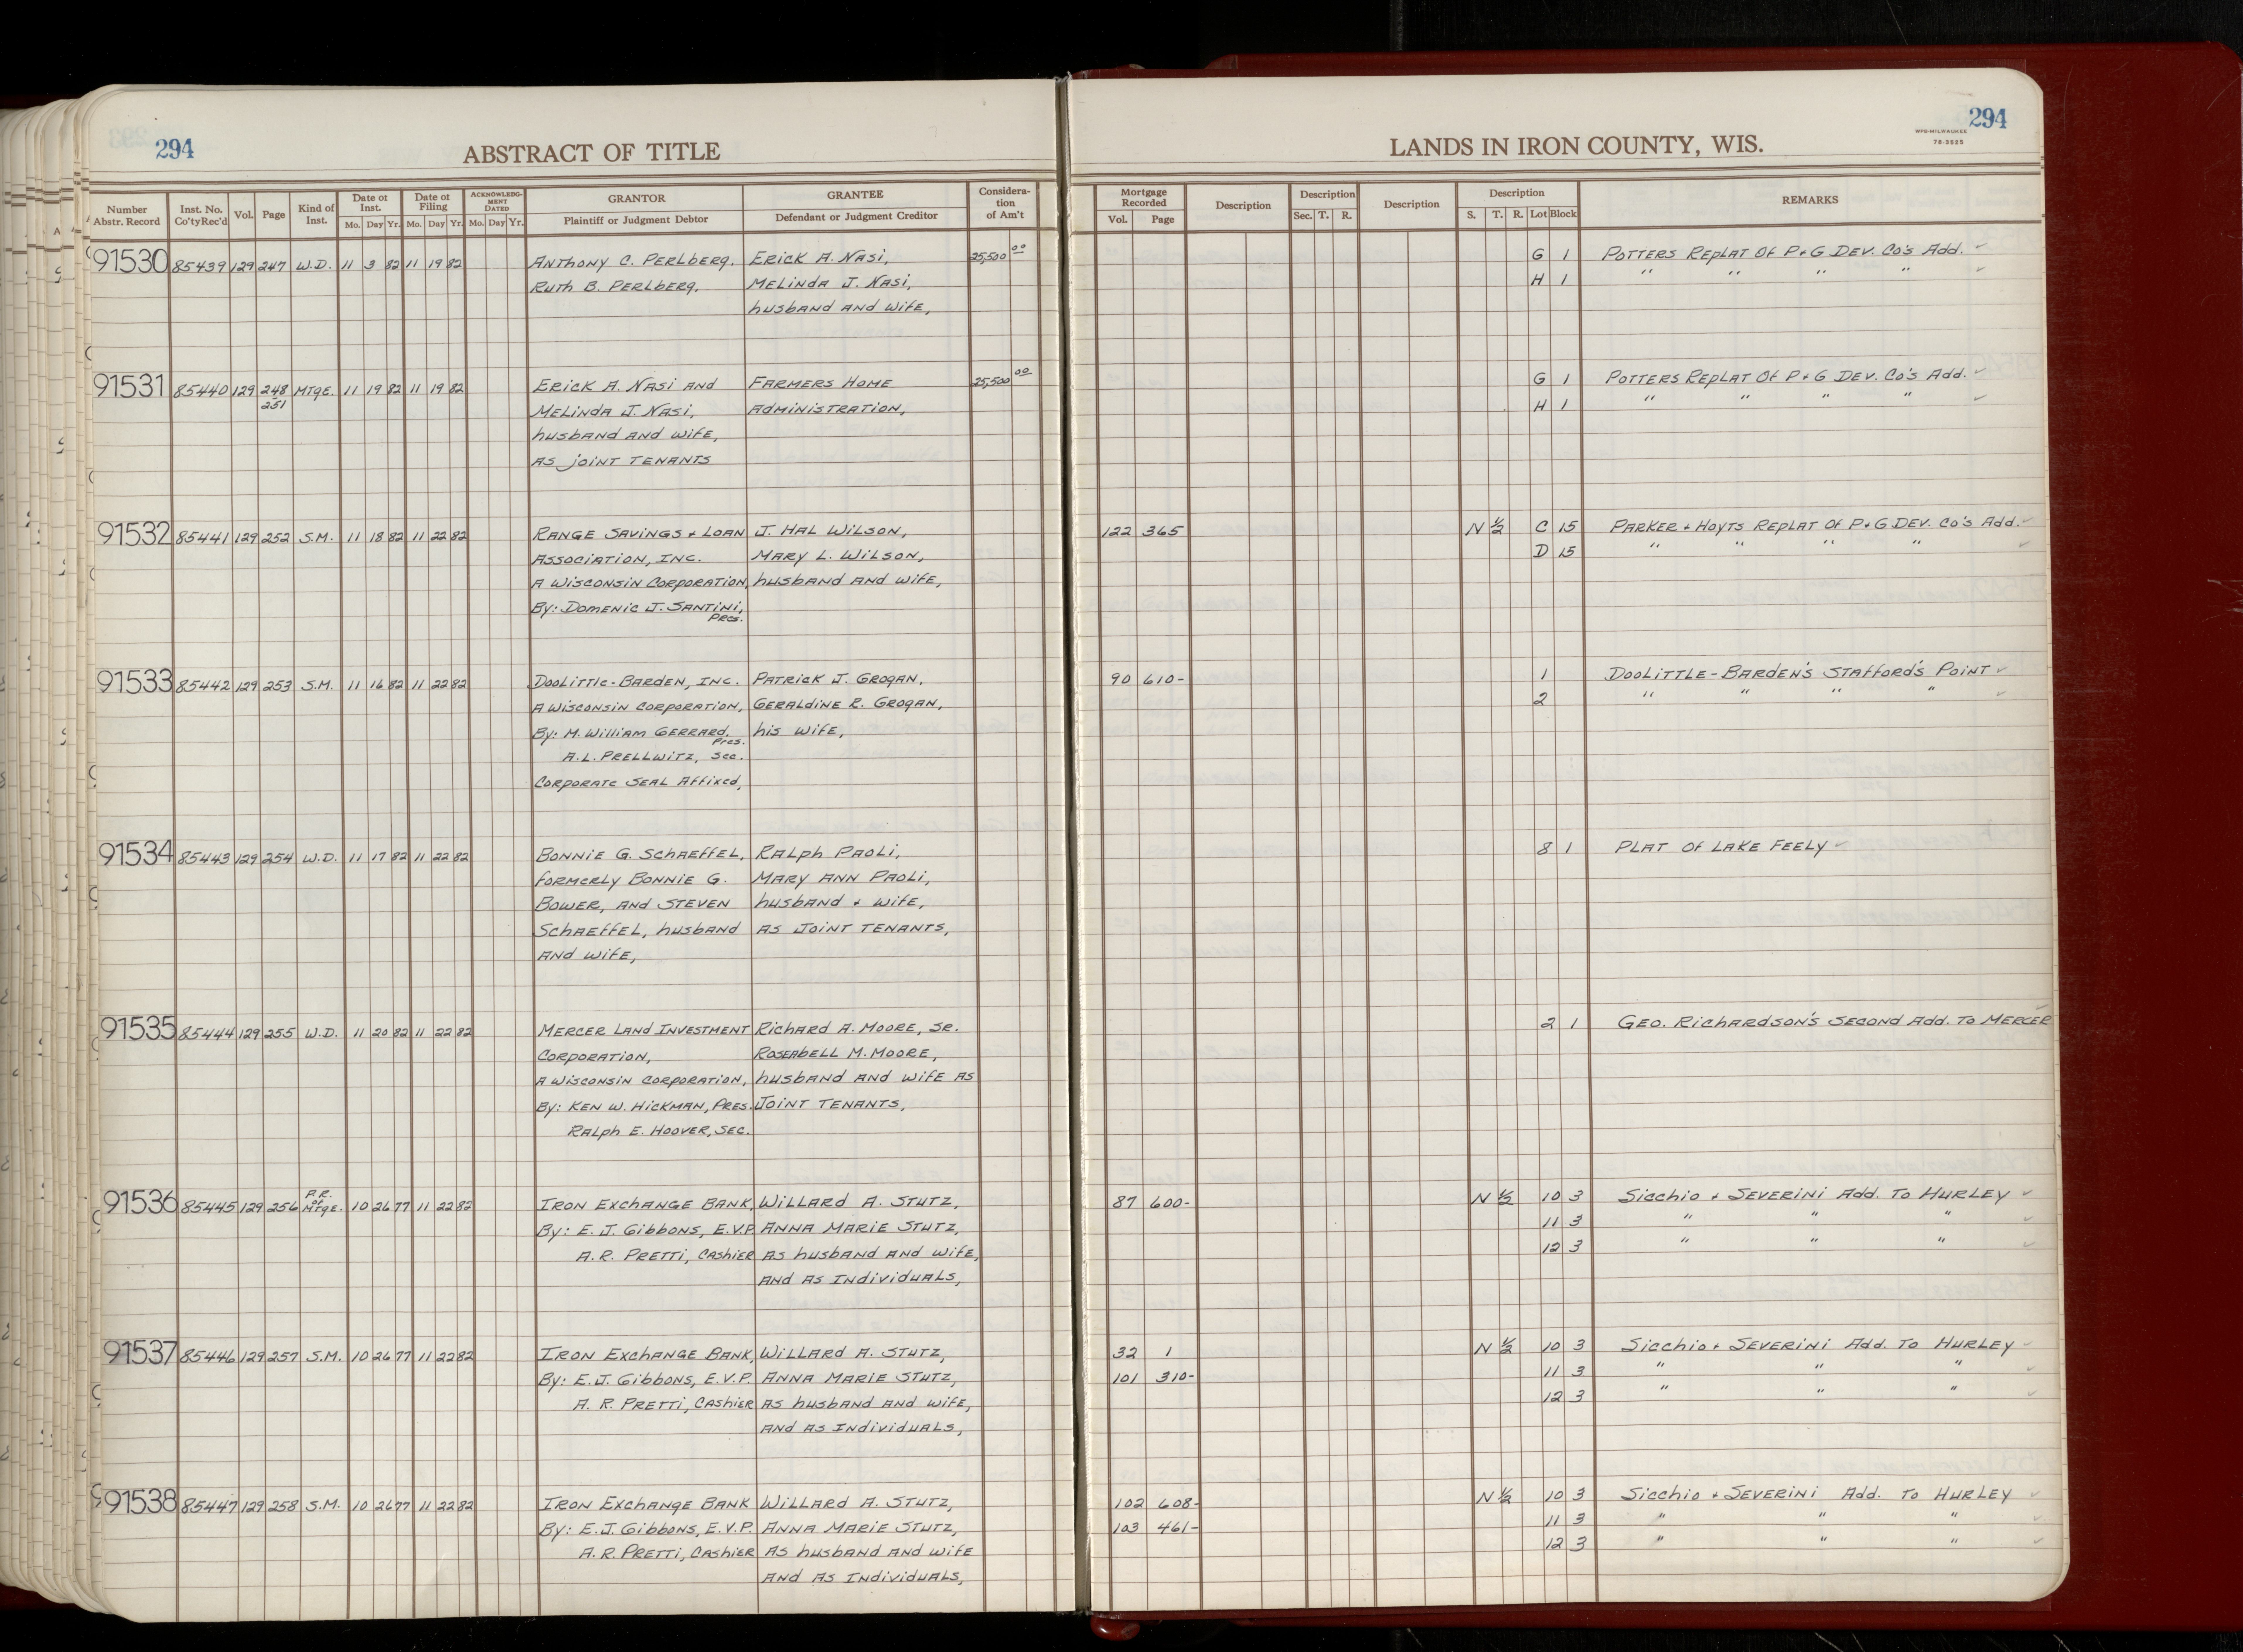 294
ABSTRACT OF TITLE
LANDS IN IRON COUNTY, WIS.
WPB-MILWAUKEE
78-3525
294
Number Abstr. Record Inst. No. Co'ty Rec'd Vol. Page Kind of Inst. Date of Inst. Mo. Day Yr. Date of Filing Mo. Day Yr. ACKNOWLEDGMENT DATED Mo. Day Yr. GRANTOR Plaintiff or Judgment Debtor GRANTEE Defendant or Judgment Creditor Consideration of Am't Mortgage Recorded Vol. Page Description Description Sec. T. R. Description Description S. T. R. Lot Block REMARKS
91530 85439 129 247 W.D. 11 3 82 11 19 82 Anthony C. Perlberg, Erick A. Nasi, 25,500 00 G 1 Potters Replat Of P+G Dev. Co's Add.
Ruth B. Perlberg, Melinda J. Nasi, H 1 " " " "
husband and wife,
91531 85440 129 248 Mtge. 11 19 82 11 19 82 Erick A. Nasi and Farmers Home 25,500 00 G 1 Potters Replat Of P+G Dev. Co's Add.
251 Melinda J. Nasi, Administration, H 1 " " " "
husband and wife,
as joint tenants
91532 85441 129 252 S.M. 11 18 82 11 22 82 Range Savings + Loan J. Hal Wilson, 122 365 N ½ C 15 Parker + Hoyts Replat Of P+G Dev. Co's Add.
Association, Inc. Mary L. Wilson, D 15 " " " "
A Wisconsin Corporation, husband and wife,
By: Domenic J. Santini,
Pres.
91533 85442 129 253 S.M. 11 16 82 11 22 82 Doolittle-Barden, Inc. Patrick J. Grogan, 90 610- 1 Doolittle-Barden's Stafford's Point
A Wisconsin Corporation, Geraldine R. Grogan, 2 " " " "
By: M. William Gerrard, his wife,
Pres.
A.L. Prellwitz, Sec.
Corporate Seal Affixed,
91534 85443 129 254 W.D. 11 17 82 11 22 82 Bonnie G. Schaeffel, Ralph Paoli, 8 1 Plat Of Lake Feely
formerly Bonnie G. Mary Ann Paoli,
Bower, and Steven husband + wife,
Schaeffel, husband as Joint Tenants,
and wife,
91535 85444 129 255 W.D. 11 20 82 11 22 82 Mercer Land Investment Richard A. Moore, Sr. 2 1 Geo. Richardson's Second Add. To Mercer
Corporation, Roseabell M. Moore,
A Wisconsin Corporation, husband and wife as
By: Ken W. Hickman, Pres. Joint Tenants,
Ralph E. Hoover, Sec.
91536 85445 129 256 P.R. of Mtge. 10 26 77 11 22 82 Iron Exchange Bank, Willard A. Stutz, 87 600- N ½ 10 3 Sicchio + Severini Add. To Hurley
By: E.J. Gibbons, E.V.P. Anna Marie Stutz, 11 3 " " "
A.R. Pretti, Cashier as husband and wife, 12 3 " " "
and as Individuals,
91537 85446 129 257 S.M. 10 26 77 11 22 82 Iron Exchange Bank, Willard A. Stutz, 32 1 N ½ 10 3 Sicchio + Severini Add. To Hurley
By: E.J. Gibbons, E.V.P. Anna Marie Stutz, 101 310- 11 3 " " "
A. R. Pretti, Cashier as husband and wife, 12 3 " " "
and as Individuals,
91538 85447 129 258 S.M. 10 26 77 11 22 82 Iron Exchange Bank Willard A. Stutz, 102 608- N ½ 10 3 Sicchio + Severini Add. To Hurley
By: E.J. Gibbons, E.V.P. Anna Marie Stutz, 103 461- 11 3 " " "
A.R. Pretti, Cashier as husband and wife 12 3 " " "
and as Individuals,